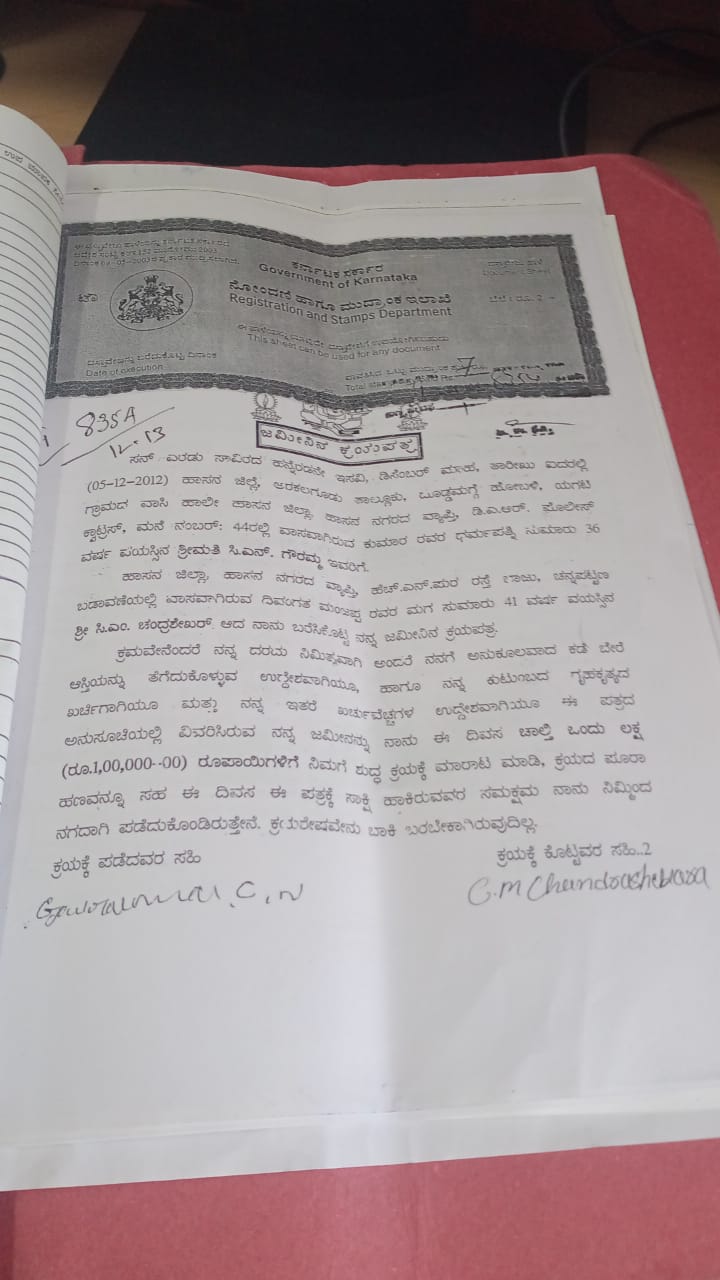 ಕರ್ನಾಟಕ ಸರ್ಕಾರ
Government of Karnataka
ನೋಂದಣಿ ಹಾಗೂ ಮುದ್ರಾಂಕ ಇಲಾಖೆ
Registration and Stamps Department
Document Sheet
ಬೆಲೆ : ರೂ. 2
This sheet can be used for any document
ದಸ್ತಾವೇಜನ್ನು ಬರೆದುಕೊಟ್ಟ ದಿನಾಂಕ
Date of execution
835A
12-13
ಜಮೀನಿನ ಕ್ರಯಪತ್ರ
ಸನ್ ಎರಡು ಸಾವಿರದ ಹನ್ನೆರಡನೇ ಇಸವಿ, ಡಿಸೆಂಬರ್ ಮಾಹ, ತಾರೀಖು ಐದರಲ್ಲಿ
(05-12-2012) ಹಾಸನ ಜಿಲ್ಲೆ, ಅರಕಲಗೂಡು ತಾಲ್ಲೂಕು, ದೊಡ್ಡಮಗ್ಗೆ ಹೋಬಳಿ, ಯಗಟಿ
ಗ್ರಾಮದ ವಾಸಿ ಹಾಲೀ ಹಾಸನ ಜಿಲ್ಲಾ, ಹಾಸನ ನಗರದ ವ್ಯಾಪ್ತಿ, ಡಿ.ಎ.ಆರ್. ಪೊಲೀಸ್
ಕ್ವಾಟ್ರಸ್, ಮನೆ ನಂಬರ್: 44ರಲ್ಲಿ ವಾಸವಾಗಿರುವ ಕುಮಾರ ರವರ ಧರ್ಮಪತ್ನಿ ಸುಮಾರು 36
ವರ್ಷ ವಯಸ್ಸಿನ ಶ್ರೀಮತಿ ಸಿ.ಎನ್. ಗೌರಮ್ಮ ಇವರಿಗೆ.
ಹಾಸನ ಜಿಲ್ಲಾ, ಹಾಸನ ನಗರದ ವ್ಯಾಪ್ತಿ, ಹೆಚ್.ಎನ್.ಪುರ ರಸ್ತೆ ಬಾಜು, ಚನ್ನಪಟ್ಟಣ
ಬಡಾವಣೆಯಲ್ಲಿ ವಾಸವಾಗಿರುವ ದಿವಂಗತ ಮಂಜಪ್ಪ ರವರ ಮಗ ಸುಮಾರು 41 ವರ್ಷ ವಯಸ್ಸಿನ
ಶ್ರೀ ಸಿ.ಎಂ. ಚಂದ್ರಶೇಖರ್. ಆದ ನಾನು ಬರೆಸಿಕೊಟ್ಟ ನನ್ನ ಜಮೀನಿನ ಕ್ರಯಪತ್ರ.
ಕ್ರಮವೇನೆಂದರೆ ನನ್ನ ದರಮ ನಿಮಿತ್ಯವಾಗಿ ಅಂದರೆ ನನಗೆ ಅನುಕೂಲವಾದ ಕಡೆ ಬೇರೆ
ಆಸ್ತಿಯನ್ನು ತೆಗೆದುಕೊಳ್ಳುವ ಉದ್ದೇಶವಾಗಿಯೂ, ಹಾಗೂ ನನ್ನ ಕುಟುಂಬದ ಗೃಹಕೃತ್ಯದ
ಖರ್ಚಿಗಾಗಿಯೂ ಮತ್ತು ನನ್ನ ಇತರೆ ಖರ್ಚುವೆಚ್ಚಗಳ ಉದ್ದೇಶವಾಗಿಯೂ ಈ ಪತ್ರದ
ಅನುಸೂಚಿಯಲ್ಲಿ ವಿವರಿಸಿರುವ ನನ್ನ ಜಮೀನನ್ನು ನಾನು ಈ ದಿವಸ ಚಾಲ್ತಿ ಒಂದು ಲಕ್ಷ
(ರೂ.1,00,000--00) ರೂಪಾಯಿಗಳಿಗೆ ನಿಮಗೆ ಶುದ್ಧ ಕ್ರಯಕ್ಕೆ ಮಾರಾಟ ಮಾಡಿ, ಕ್ರಯದ ಪೂರಾ
ಹಣವನ್ನೂ ಸಹ ಈ ದಿವಸ ಈ ಪತ್ರಕ್ಕೆ ಸಾಕ್ಷಿ ಹಾಕಿರುವವರ ಸಮಕ್ಷಮ ನಾನು ನಿಮ್ಮಿಂದ
ನಗದಾಗಿ ಪಡೆದುಕೊಂಡಿರುತ್ತೇನೆ. ಕ್ರಯಶೇಷವೇನು ಬಾಕಿ ಬರಬೇಕಾಗಿರುವುದಿಲ್ಲ.
ಕ್ರಯಕ್ಕೆ ಪಡೆದವರ ಸಹಿ
ಕ್ರಯಕ್ಕೆ ಕೊಟ್ಟವರ ಸಹಿ..2
C.N
C.M Chandrashekara